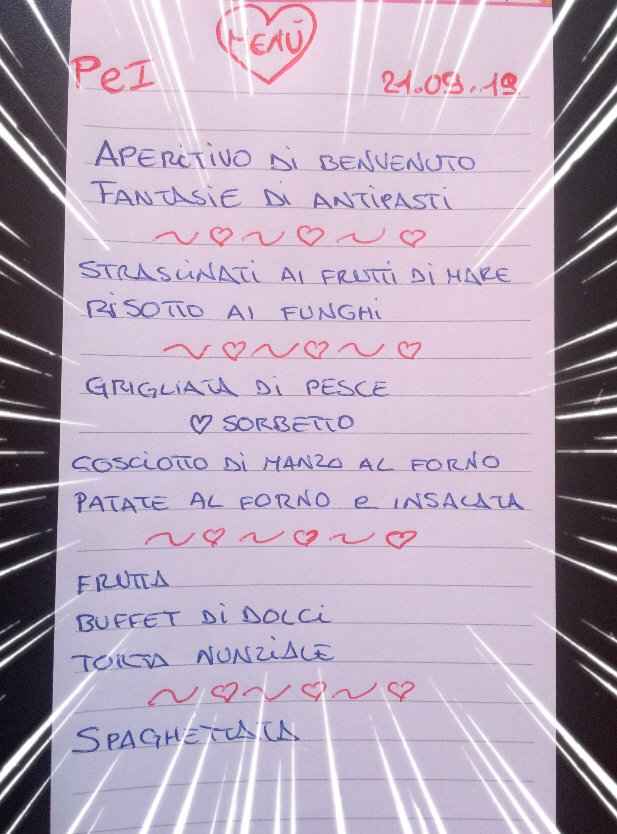 MENÙ
PeI 21.09.19
APERITIVO DI BENVENUTO
FANTASIE DI ANTIPASTI
STRASCINATI AI FRUTTI DI MARE
RISOTTO AI FUNGHI
GRIGLIATA DI PESCE
♡ SORBETTO
COSCIOTTO DI MANZO AL FORNO
PATATE AL FORNO e INSALATA
FRUTTA
BUFFET DI DOLCI
TORTA NUNZIALE
SPAGHETTATA